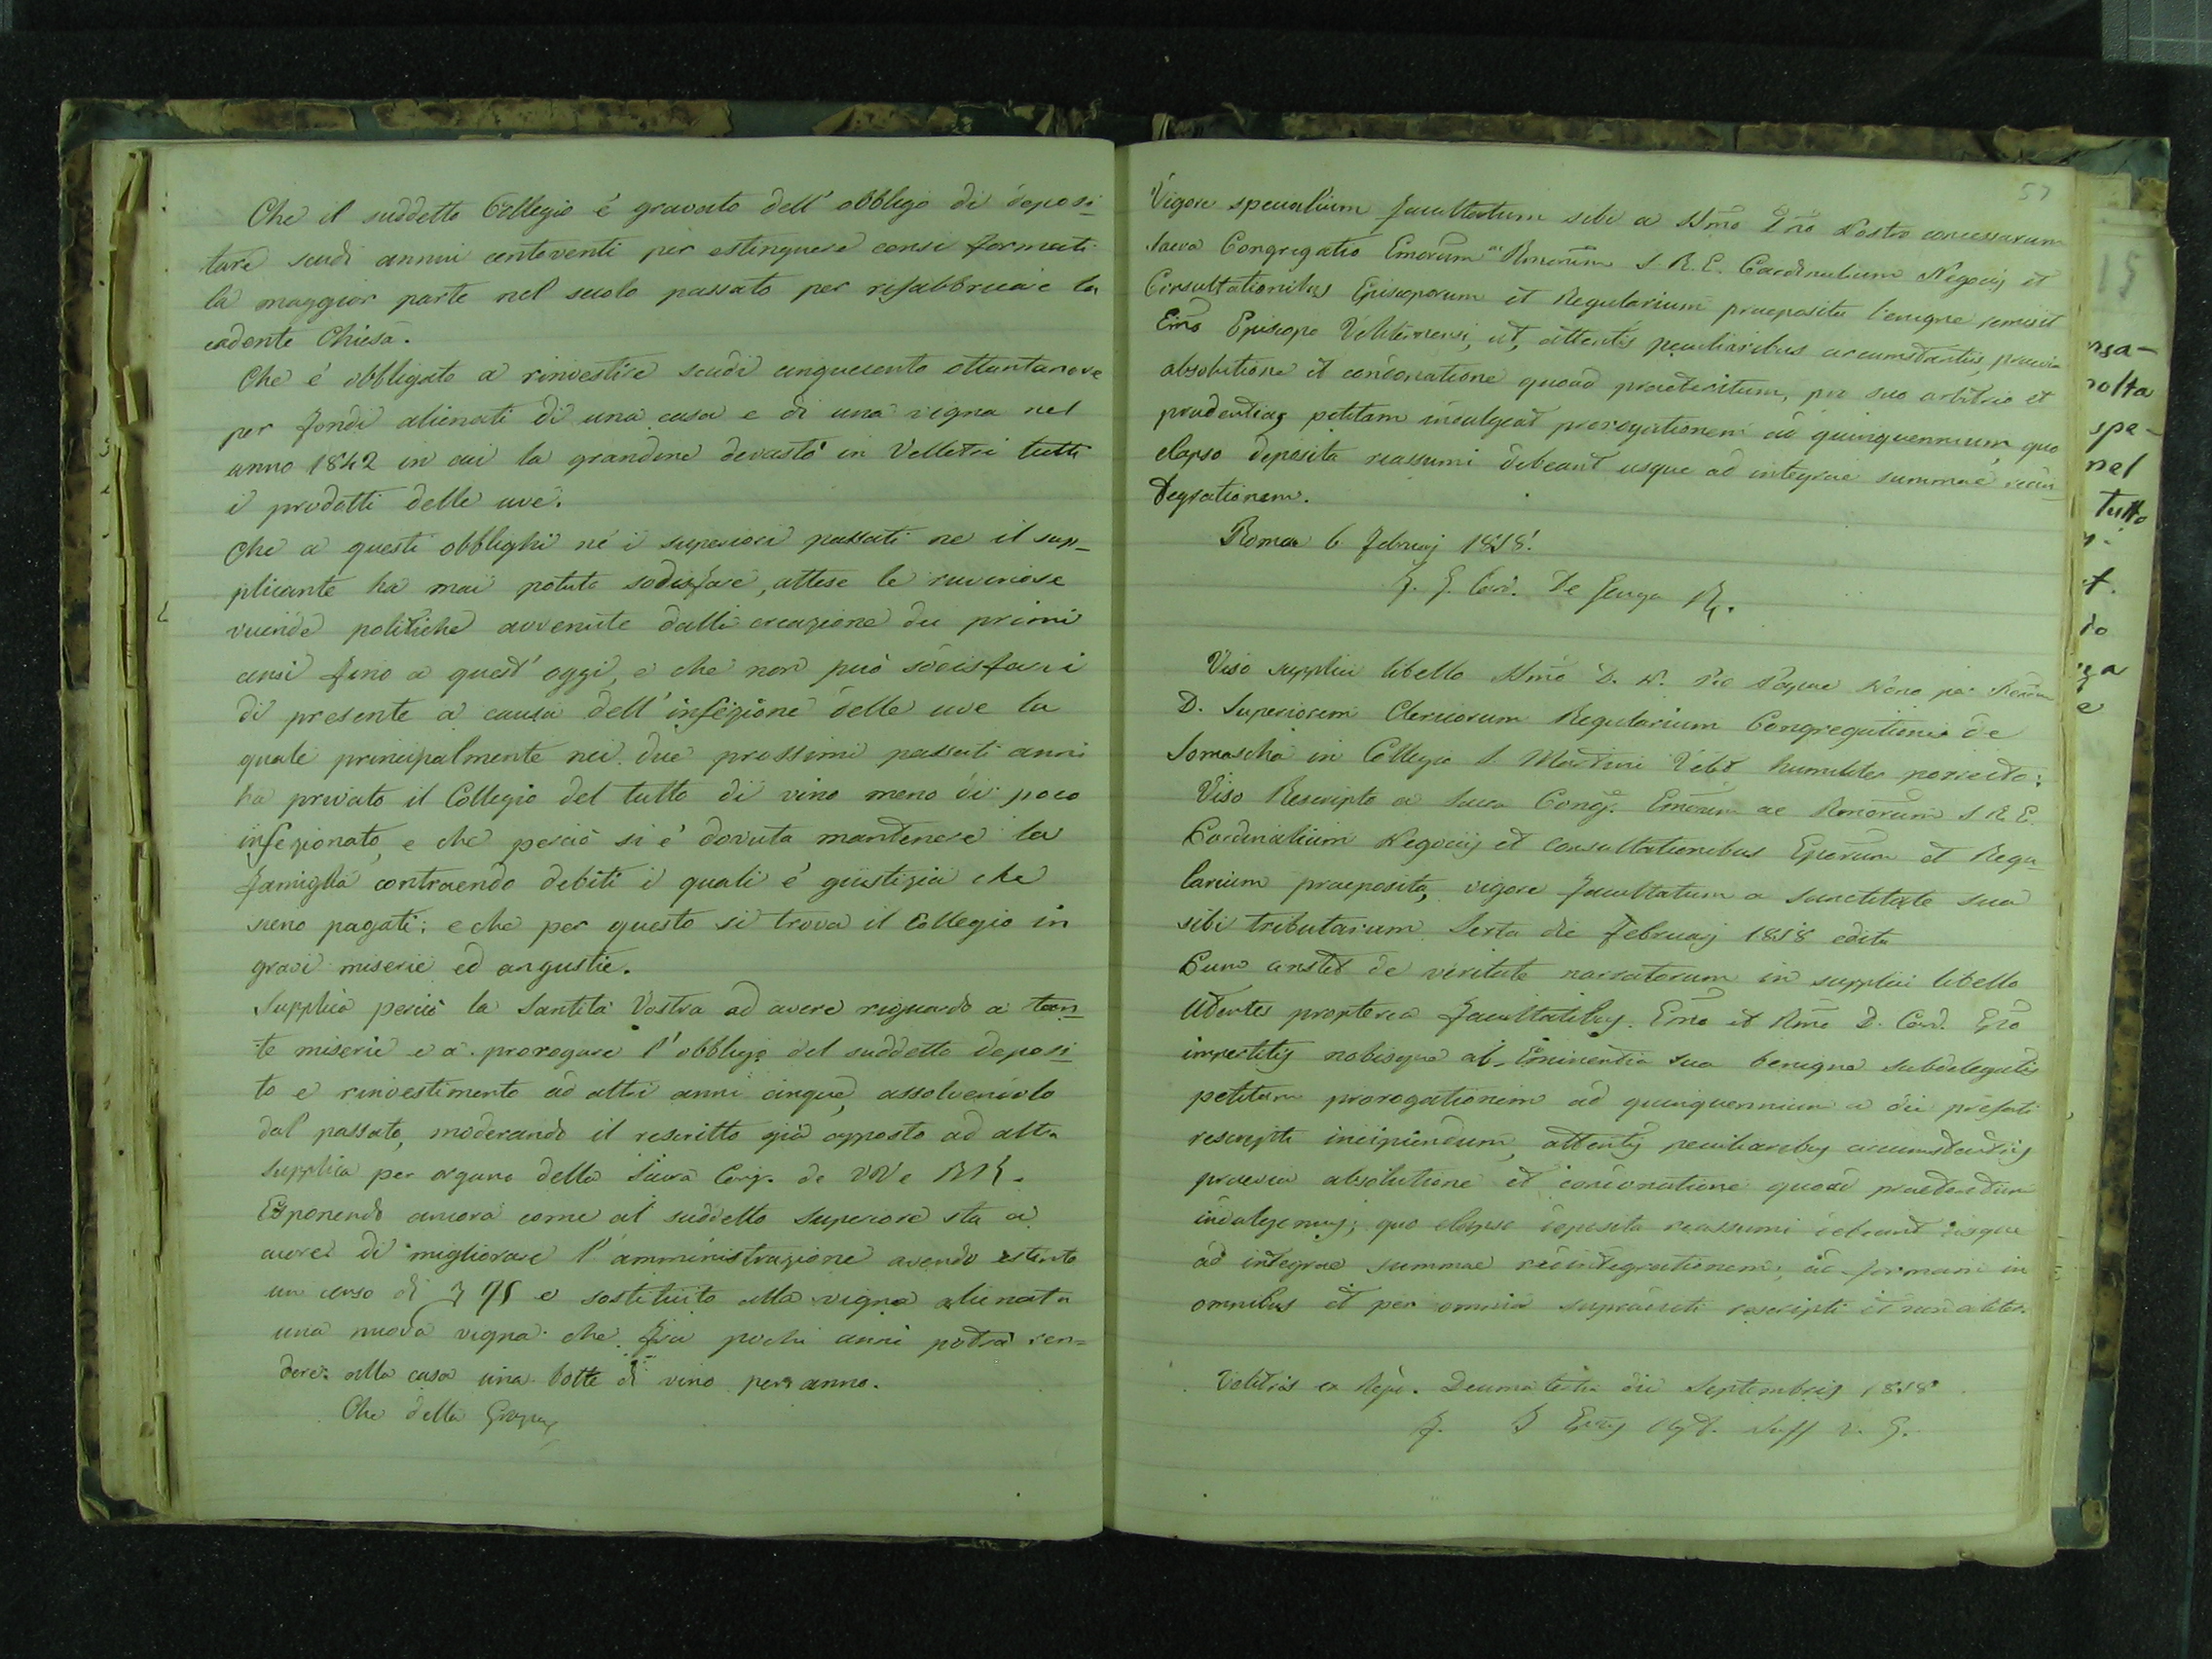 Che il suddetto Collegio é gravato dell' obbligo di deposi-
tare scudi annui centoventi per estinguere censi formati
la maggior parte nel secolo passato per refabbricare la
cadente Chiesa.
Che é obbligato a rinvestire scudi cinquecento ottantanove
per fondi alienati di una casa e di una vigna nel
anno 1842 in cui la grandine devastó in Velletri tutti
i prodotti delle uve.
Che a questi obblighi né i superiori passati ne il sup-
plicante ha mai potuto sodisfare, attese le ruvinose
vicende politiche avvenute dalla creazione dei primi
censi fino a quest' oggi, e che non può sodisfarvi
di presente a causa dell' infezione delle uve la
quale principalmente nei due prossimi passati anni
ha privato il Collegio del tutto di vino meno di poco
infezionato, e che perciò si é dovuta mantenere la
famiglia contraendo debiti i quali é giustizia che
sieno pagati; e che per questo si trova il Collegio in
gravi miserie ed angustie.
Supplica perciò la Santità Vostra ad avere riguardo a tan-
te miserie e a prorogare l' obbligo del suddetto deposi-
to e rinvestimento ad altri anni cinque, assolvendolo
dal passato, moderando il rescritto già apposto ad altra
supplica per organo della Sacra Cong. de VV e RR.
Esponendo ancora come al suddetto Superiore sta a
cuore di migliorare l' amministrazione avendo estinto
un censo di 75 e sostituito alla vigna alienata
una nuova vigna che fra pochi anni potrà ren-
dere alla casa una botte di vino per anno.
Che della Grazia
57
Vigore specialium facultatum sibi a SSmo Dno Nostro concessarum
Sacra Congregatio Emorum ac Rmorum S. R. E. Cardinalium Negociis et
Consultationibus Episcoporum et Regularium praeposita benigne remisit
Emo Episcopo Veliternensi, ut, attentis peculiaribus circumstantiis, praevia
absolutione et condonatione quoad praeteritum, pro suo arbitrio et
prudentia, petitam indulgeat prorogationem ad quinquennium, quo
elapso deposita reassumi debeant usque ad integrae summae redin-
tegrationem.
Romae 6 Februarj 1858.
Card. De Genga
Viso supplici libello SSmo D. N. Pio Papae Nono per
D. Superiorem Clericorum Regularium Congregationis de
Somascha in Collegio S. Martini Velit. humiliter porrecto:
Viso Rescripto a Sacra Cong. Emorum ac Rmorum S. R. E.
Cardinalium Negociis et consultationibus Eporum et Regu-
larium praeposita, vigore facultatum a sanctitate sua
sibi tributarum Sexta die Februarj 1858 edito
Cum constet de veritate narratorum in supplici libello
Utentes propterea facultatibus Emo et Rmo D. Card. Epo
impertitis nobisque ab Eminentia sua benigne subdelegatis
petitam prorogationem ad quinquennium a die prefati
rescripti incipiendum, attentis peculiaribus circumstantiis
praevia absolutione et condonatione quoad praeteritum
indulgemus; quo elapso deposita reassumi debeant usque
ad integrae summae redintegrationem; ad formam in
omnibus et per omnia supradicti rescripti et non aliter.
Velitris ex Decima tertia die Septembris 1858
Suff V. G.
15
nsa-
nolta
spe-
nel
tutto